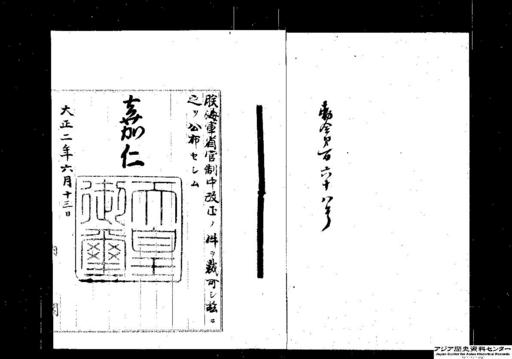 勅令第百六十八号
朕海軍省官制中改正ノ件ヲ裁可シ茲ニ
之ヲ公布セシム
嘉仁
天皇御璽
大正二年六月十三日
アジア歴史資料センター
Japan Center for Asian Historical Records